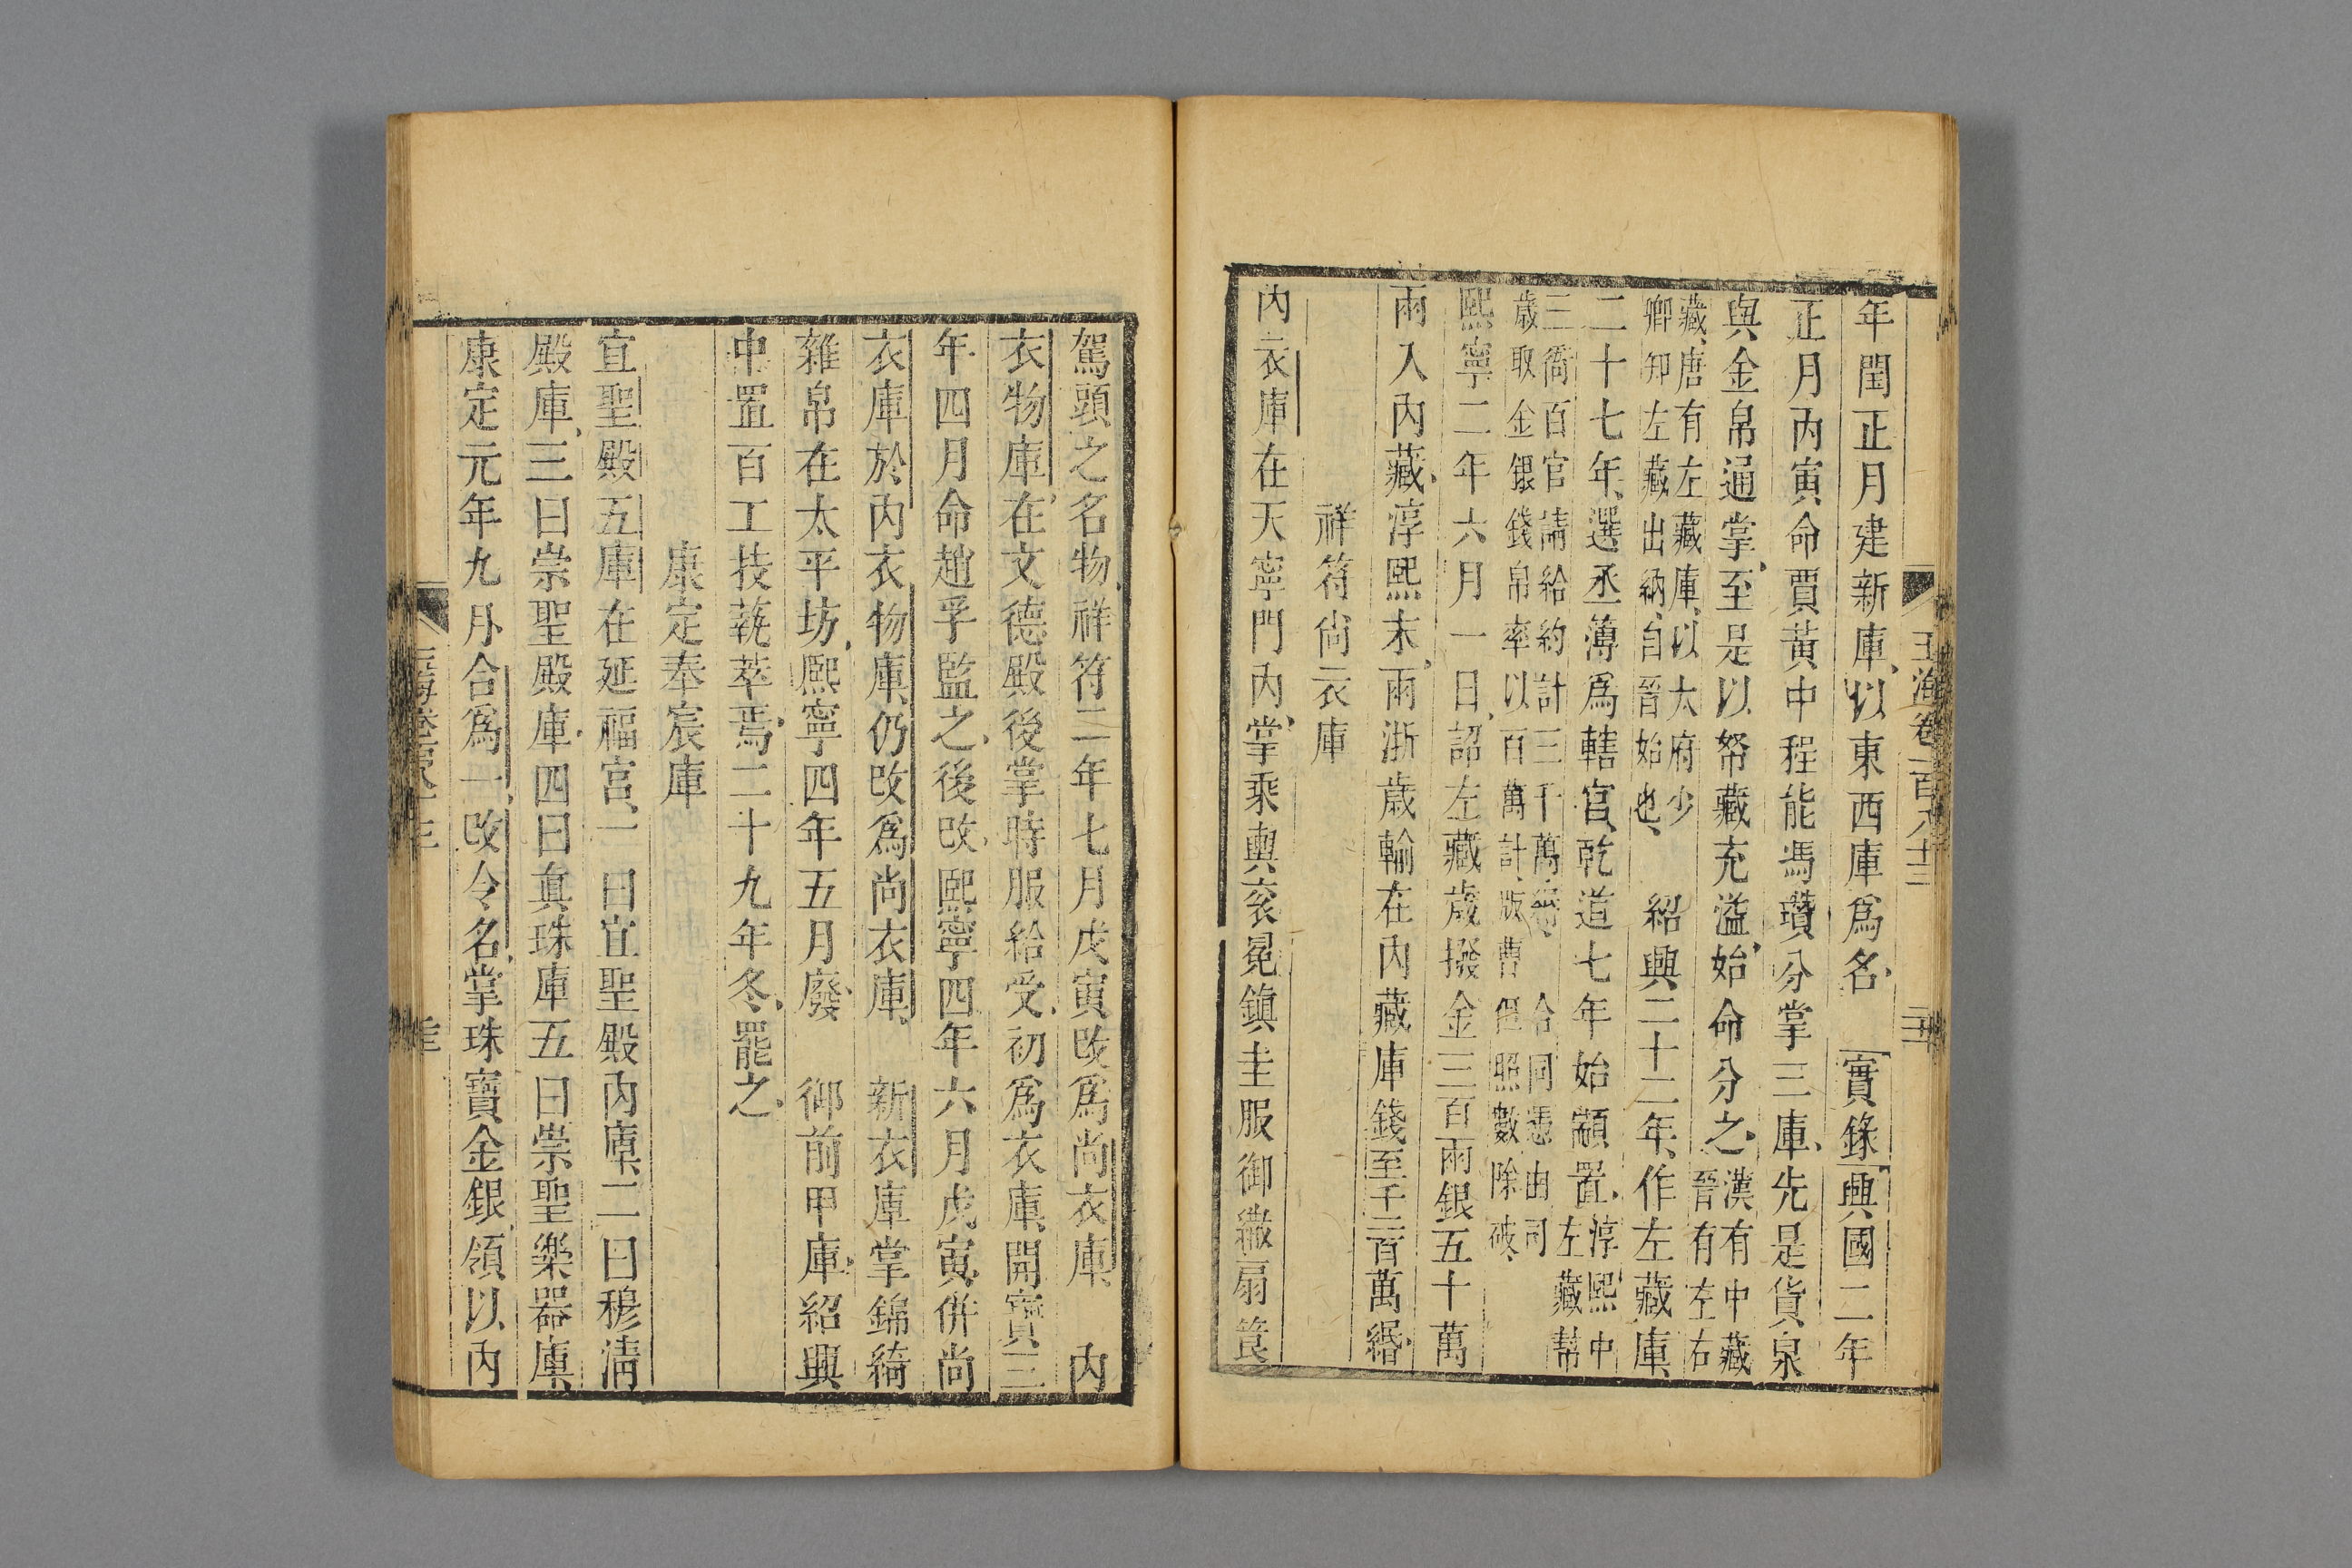 玉海卷一百八十三
年閏正月建新庫以東西庫爲名 實錄興國二年
正月丙寅命賈黃中程能馮瓚分掌三庫先是貨泉
與金帛通掌至是以帑藏充溢始命分之漢有中藏
晉有左右
藏唐有左藏庫以太府少
卿知左藏出納自晉始也 紹興二十二年作左藏庫
二十七年選丞簿爲轄官乾道七年始顓置淳熙中
左藏幫
三衙百官請給約計三千萬緡 合同憑由司
歲取金銀錢帛率以百萬計版曹但照數除破
熙寧二年六月一日詔左藏歲撥金三百兩銀五十萬
兩入內藏淳熙末兩浙歲輸在內藏庫錢至千三百萬緡
祥符尙衣庫
內衣庫在天寧門內掌乘輿袞冕鎮圭服御繖扇筤
駕頭之名物祥符二年七月戊寅改爲尚衣庫 內
衣物庫在文德殿後掌時服給受初爲衣庫開寶三
年四月命趙孚監之後改熙寧四年六月戊寅併尚
衣庫於內衣物庫仍改爲尚衣庫 新衣庫掌錦綺
雜帛在太平坊熙寧四年五月廢 御前甲庫紹興
中置百工技蓺萃焉二十九年冬罷之
康定奉宸庫
宜聖殿五庫在延福宮一曰宜聖殿內庫二曰穆清
殿庫三曰崇聖殿庫四曰真珠庫五曰崇聖樂器庫
康定元年九月合爲一改今名掌珠寶金銀領以內